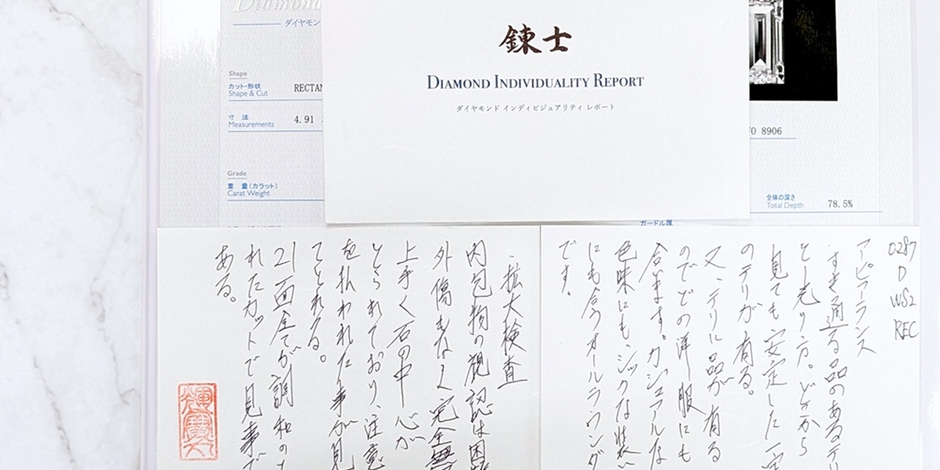 Diamond
ダイヤモン
Shape
カット・形状
Shape & Cut
RECTAN
寸 法
Measurements
4.91
Grade
重 量(カラット)
Carat Weight
錬士
DIAMOND INDIVIDUALITY REPORT
ダイヤモンド インディビジュアリティ レポート
8906
全体の深さ
Total Depth
78.5%
ガードル厚
0287
D
VVS2
REC
アピアランス
すき通る品のあるテリ
と光り方。どこから
見ても安定した一定
のテリが有る。
又、テリに品が有る
のでどの洋服にも
合います。カジュアルな
色味にも、シックな装い
にも合うオールラウンダ
です。
・拡大検査
内包物の視認は困難
外傷もなく完全無
上手く石の中心が
とられており、注意
を払われた事が見
てとれる。
21面全てが調和のと
れたカットで見事で
ある。